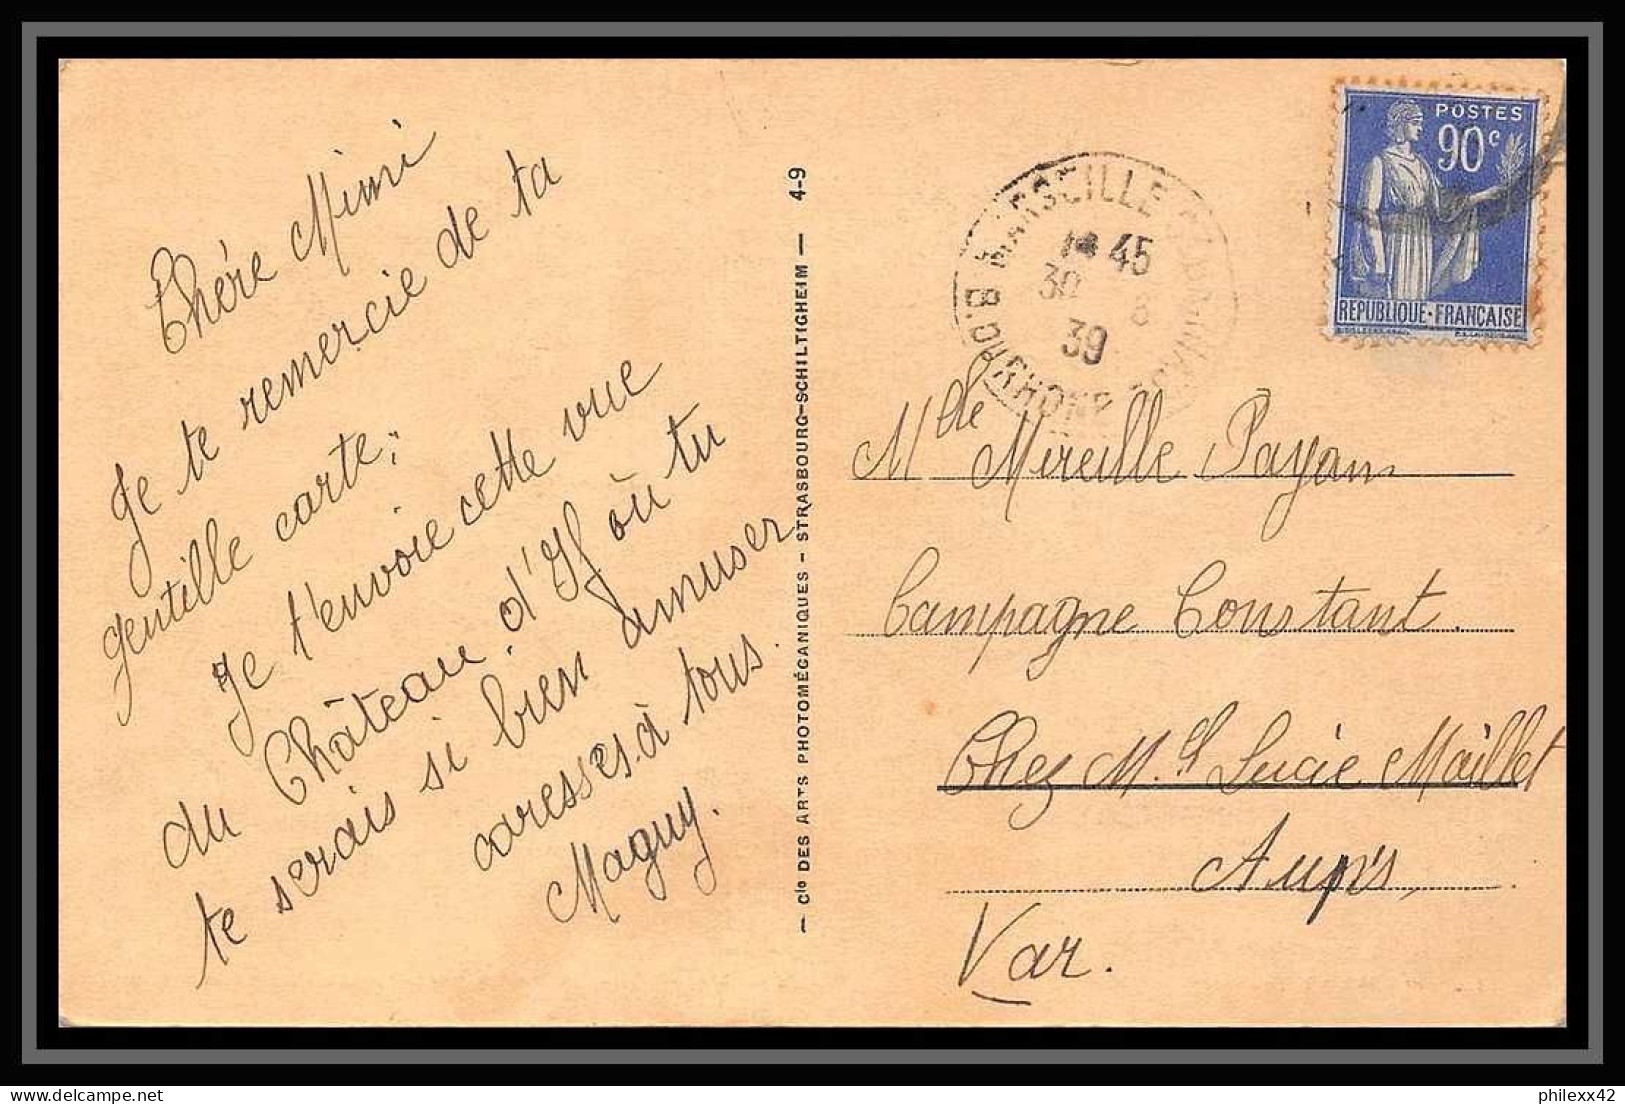 Chère Mimi
Je te remercie de ta
gentille carte;
Je t'envoie cette vue
du Château d'If où tu
te serais si bien amuser
caresses à tous.
Maguy.
— Cie DES ARTS PHOTOMÉCANIQUES - STRASBOURG-SCHILTIGHEIM — 4-9
MARSEILLE
45
30 8
39
B. DU RHONE
POSTES
90c
REPUBLIQUE·FRANÇAISE
Mlle Mireille Payan
Campagne Constant.
Chez M. Lucie Maillet
Aups,
Var.
philexx42